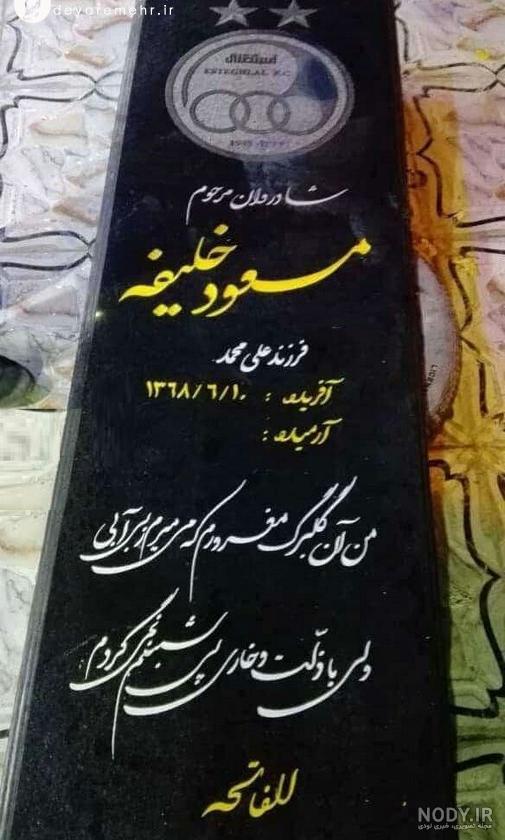 deyafemehr.ir
استقلال
ESTEGHLAL F.C
شادروان مرحوم
مسعود خلیفه
فرزند علی محمد
آفریده : ۱۳۶۸/۶/۱۰
آرمیده :
من آن گلبرگ مغرورم که می میرم ز بی آبی
ولی با ذلت و خاری پی شبنم نمی گردم
للفاتحه
NODY.IR
مجله تصویری، خبری نودی